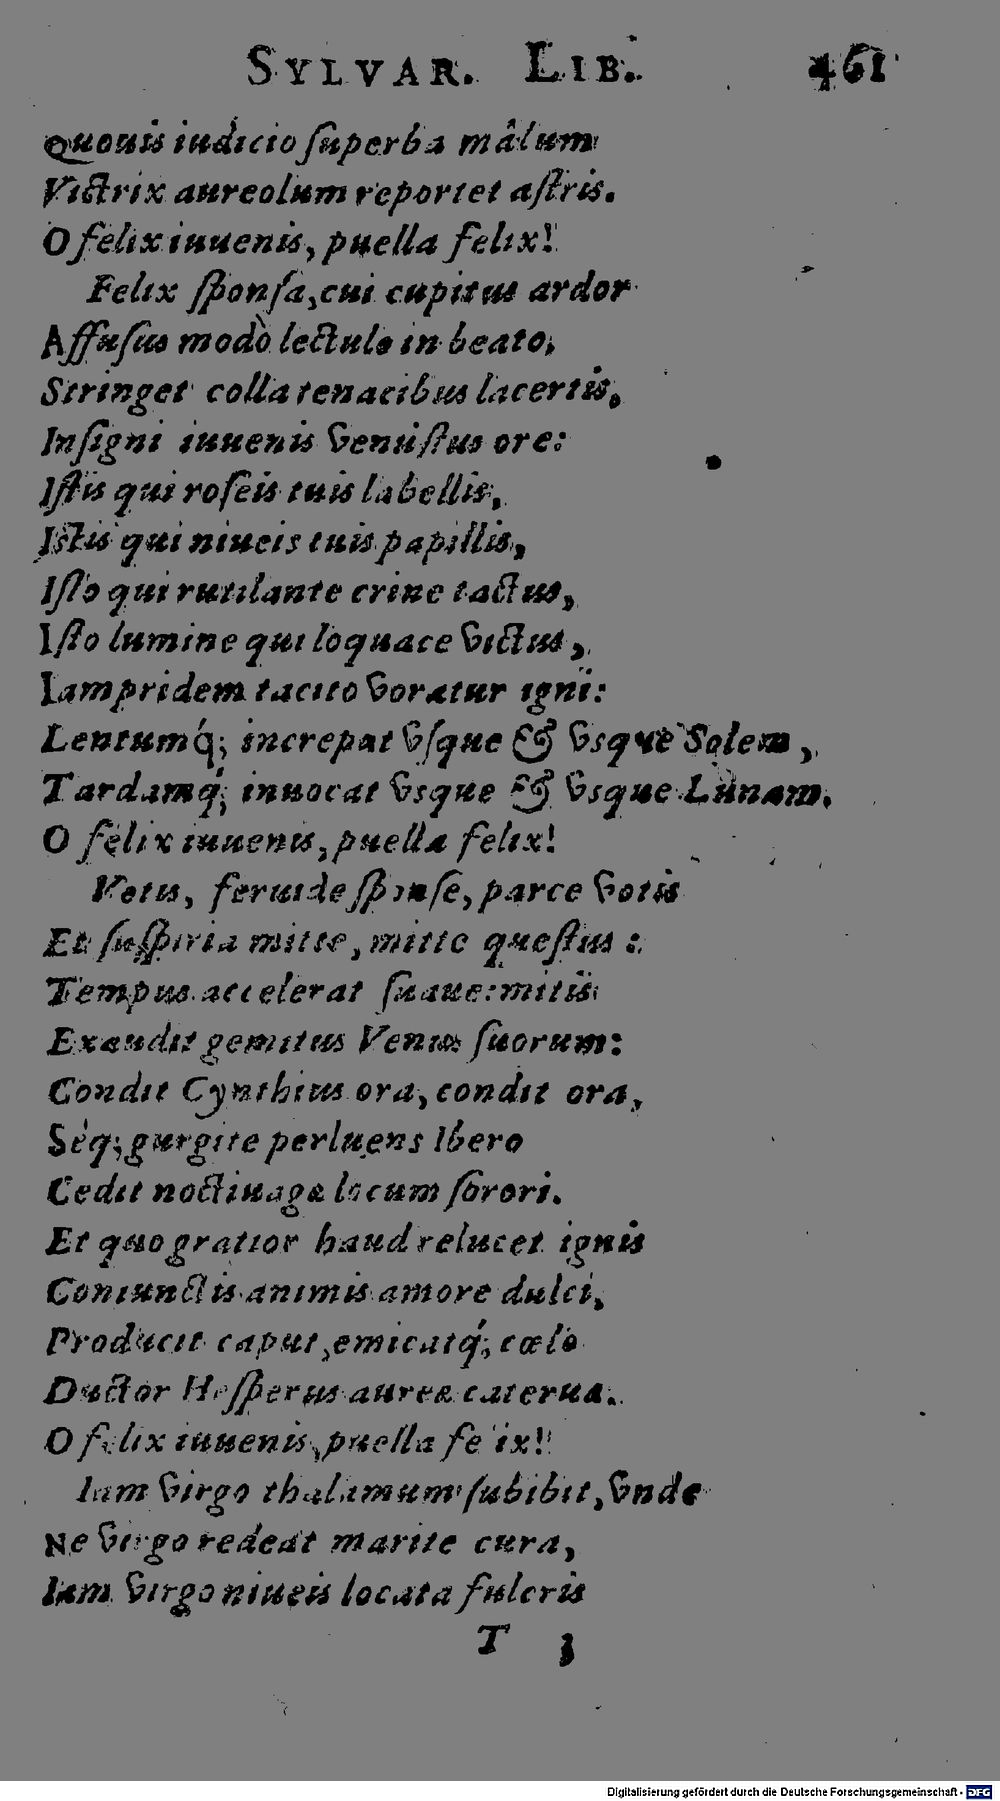 SYLVAR. LIB. 461
Quouis iudicio ſuperba mâlum
Victrix aureolum reportet aſtris.
O felix iuuenis, puella felix!
Felix ſponſa, cui cupitus ardor
Affuſus modò lectulo in beato,
Stringet colla tenacibus lacertis,
Inſigni iuuenis venuſtus ore:
Iſtis qui roſeis tuis labellis,
Istis qui niueis tuis papillis,
Iſto qui rutilante crine tactus,
Iſto lumine qui loquace victus,
Iampridem tacito voratur igni:
Lentumq́; increpat vſque & vsque Solem,
Tardamq́; inuocat vsque & vsque Lunam.
O felix iuuenis, puella felix!
Votis, feruide ſponſe, parce votis
Et ſuſpiria mitte, mitte queſtus:
Tempus accelerat ſuaue: mitis
Exaudit gemitus Venus ſuorum:
Condit Cynthius ora, condit ora,
Séq; gurgite perluens Ibero
Cedit noctiuagæ locum ſorori.
Et quo gratior haud relucet ignis
Coniunctis animis amore dulci,
Producit caput, emicatq́; cœlo
Ductor Heſperus aureæ caterua.
O felix iuuenis, puella felix!
Iam virgo thalamum ſubibit, vnde
Ne virgo redeat marite cura,
Iam virgo niueis locata fulcris
T 3
Digitalisierung gefördert durch die Deutsche Forschungsgemeinschaft - DFG